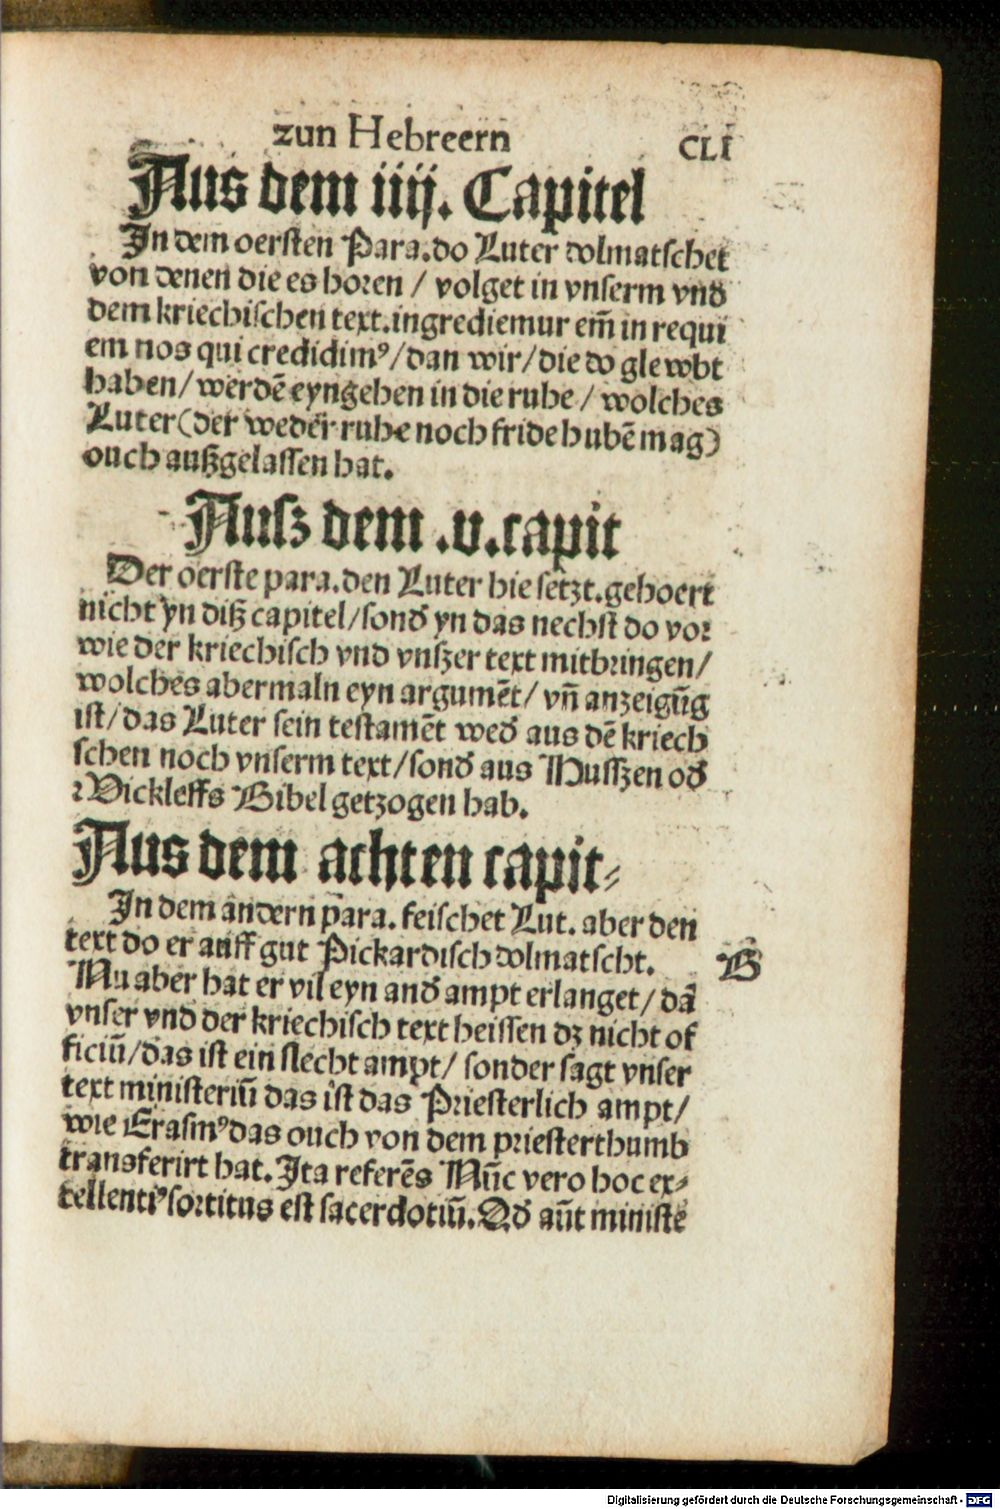 zun Hebreern
CLI
Aus dem iiij. Capitel
In dem oersten Para. do Luter dolmatschet
von denen die es horen / volget in vnserm vnd
dem kriechischen text. ingrediemur em̃ in requi
em nos qui credidimꝰ / dan wir / die do glewbt
haben / werdẽ eyngehen in die ruhe / wolches
Luter (der weder ruhe noch fride hubẽ mag)
ouch außgelassen hat.
Ausz dem .v. capit
Der oerste para. den Luter hie setzt. gehoert
nicht yn diß capitel / sond̕ yn das nechst do vor
wie der kriechisch vnd vnszer text mitbringen /
wolches abermaln eyn argumẽt / vñ anzeigũg
ist / das Luter sein testamẽt wed̕ aus dẽ kriech
schen noch vnserm text / sond̕ aus Husszen od̕
Vickleffs Bibel getzogen hab.
Aus dem achten capit⸗
In dem andern para. felschet Lut. aber den
text do er auff gut Pickardisch dolmatscht.
B
Nu aber hat er vil eyn and̕ ampt erlanget / dã
vnser vnd der kriechisch text heissen dz nicht of
ficiũ / das ist ein slecht ampt / sonder sagt vnser
text ministeriũ das ist das Priesterlich ampt /
wie Erasmꝰ das ouch von dem priesterthumb
transferirt hat. Ita referẽs Nũc vero hoc ex⸗
cellentiꝰ sortitus est sacerdotiũ. Qd̕ aũt ministe
Digitalisierung gefördert durch die Deutsche Forschungsgemeinschaft - DFG